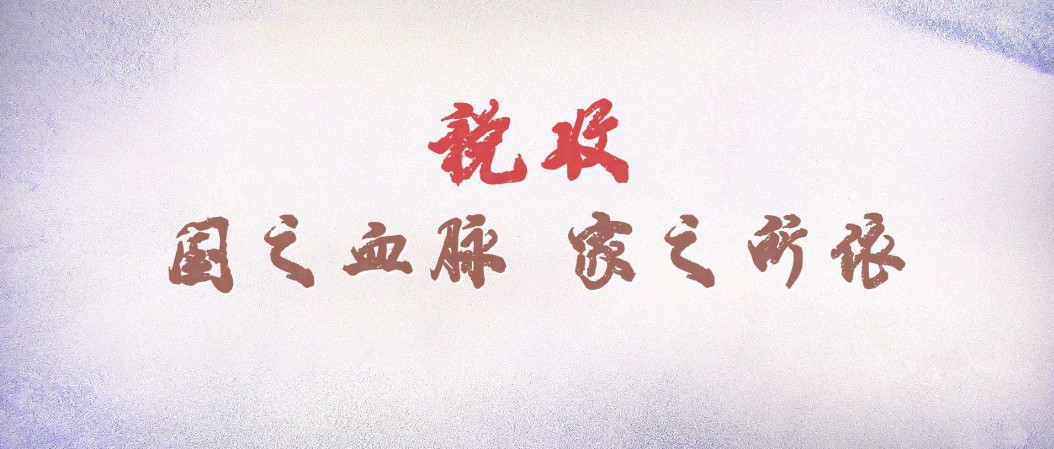 税收
国之血脉 家之所依